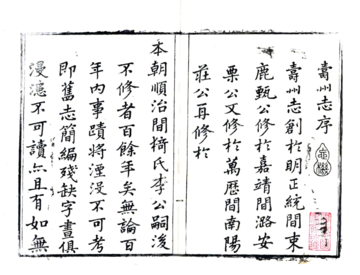 壽州志序
壽州志創於明正統間東
鹿甄公修於嘉靖間潞安
栗公又修於萬歷間南陽
莊公再修於
本朝順治間椅氏李公嗣浚
不修者百餘年矣無論百
年內事蹟將湮沒不可考
即舊志簡編殘缺字畫俱
漫漶不可讀亦且有如無